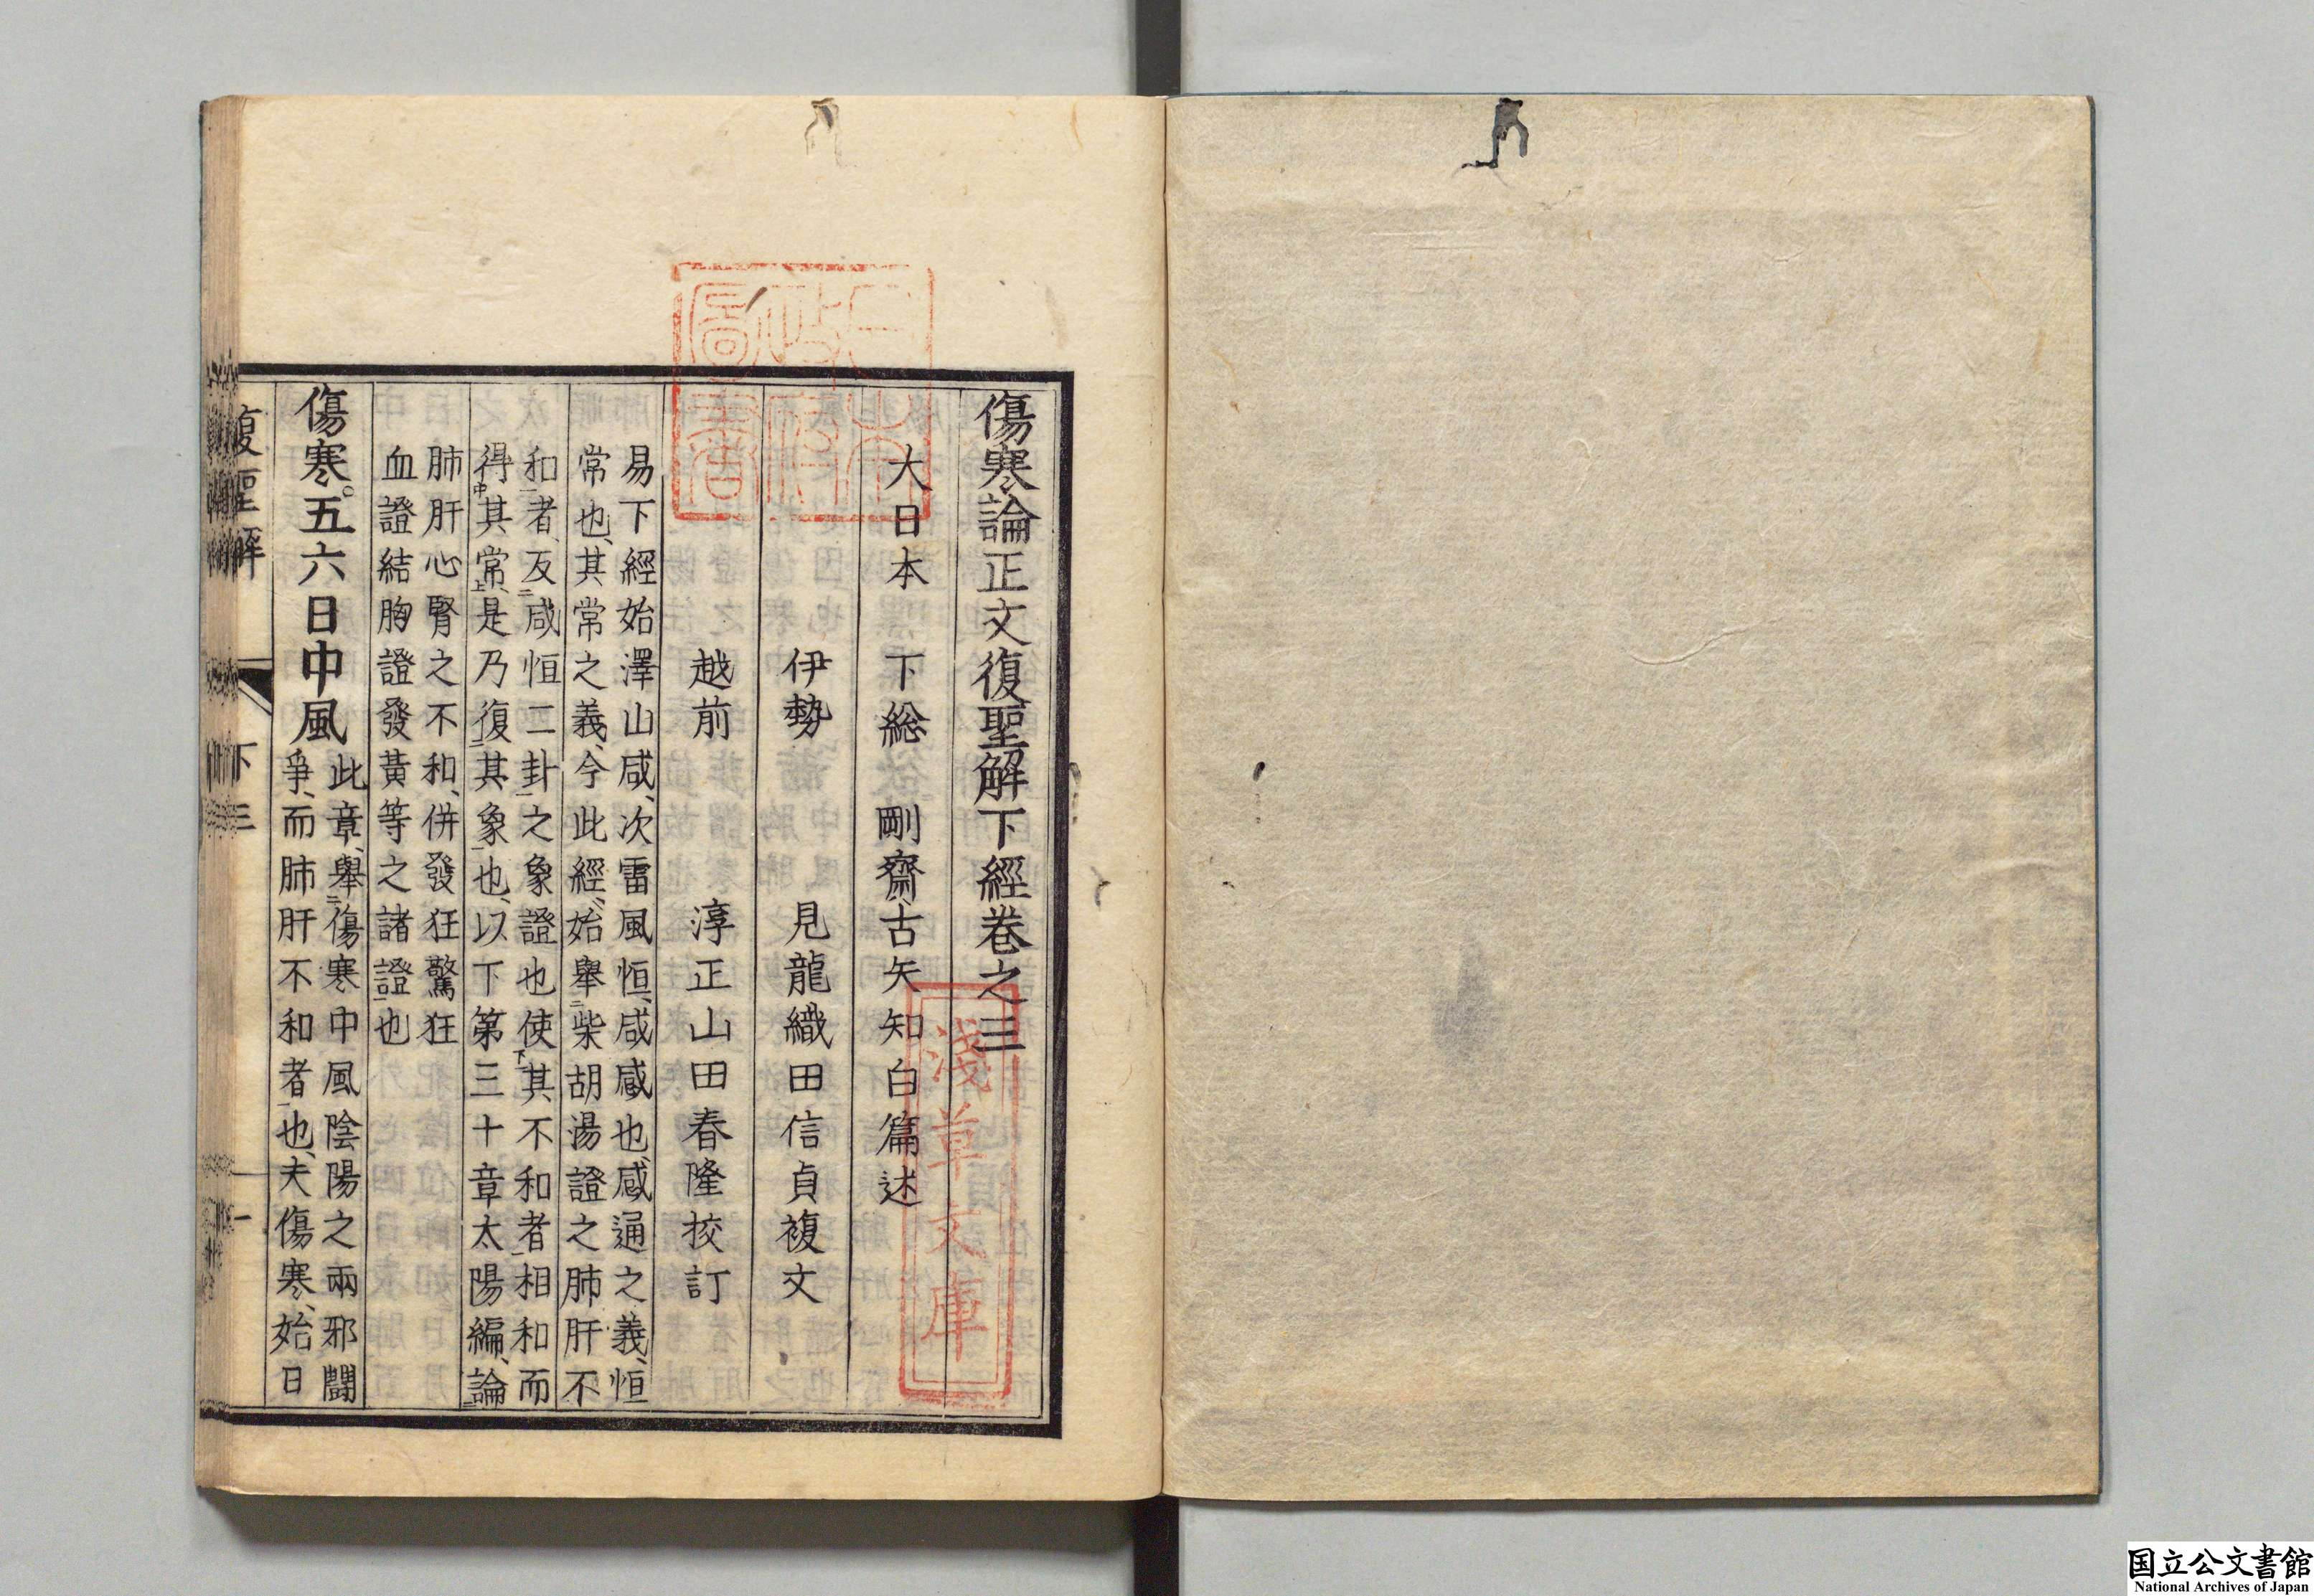 傷寒論正文復聖解下經卷之三
大日本　下総　剛齋古矢知白篇述
伊勢　見龍織田信貞複文
越前　淳正山田春隆挍訂
易下經始澤山咸、次雷風恒、咸感也、感通之義、恒
常也、其常常之義、今此經、始舉二柴胡湯證之肺肝不
和一者、反二咸恒二卦一之象證也使下其不和者一相和而
得中其常上、是乃復二其象一也、以下第三十章太陽編、論二
肺肝心腎之不和、併發狂驚狂
血證結胸證發黃等之諸證一也
傷寒。五六日中風
此章、舉二傷寒中風陰陽之兩邪鬪
爭、而肺肝不和者一也、夫傷寒、始日
復聖解　下三　一
日本政府圖書
淺草文庫
国立公文書館
National Archives of Japan